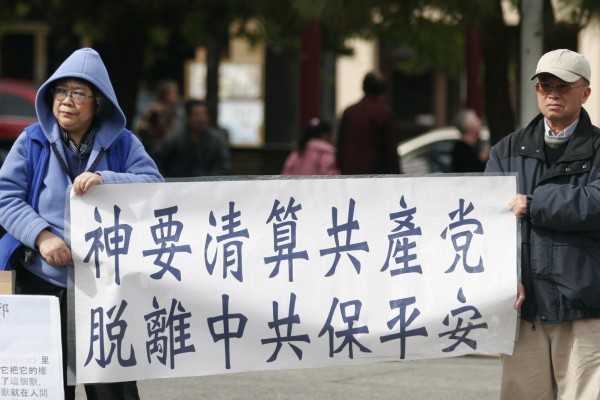 神要清算共產党
脱離中共保平安
邪
里
它把它的
了這個獸,
獸就在人間